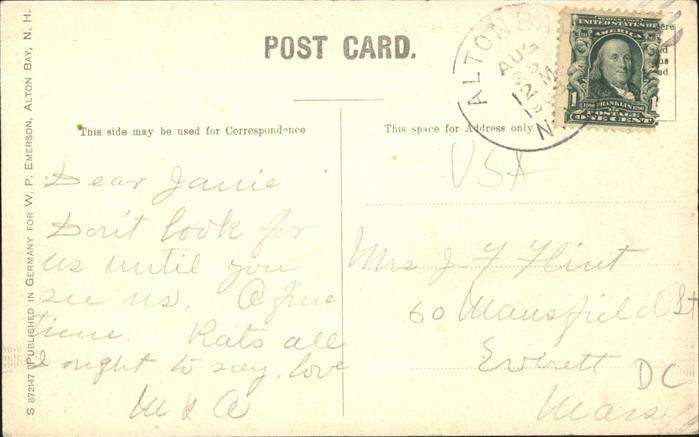 POST CARD.
This side may be used for Correspondence
This space for Address only
ALTON BA
AUG
12 M
N.
UNITED STATES OF AMERICA
1 FRANKLIN 1
POSTAGE
ONE CENT
USA
Dear Janie
Don't look for
us until you
see us. A fine
time. Rats all
I ought to say, love
M & A
Mrs J F Flint
60 Mansfield St
Everett
DC
Mass
S 872147 PUBLISHED IN GERMANY FOR W. P. EMERSON, ALTON BAY, N. H.